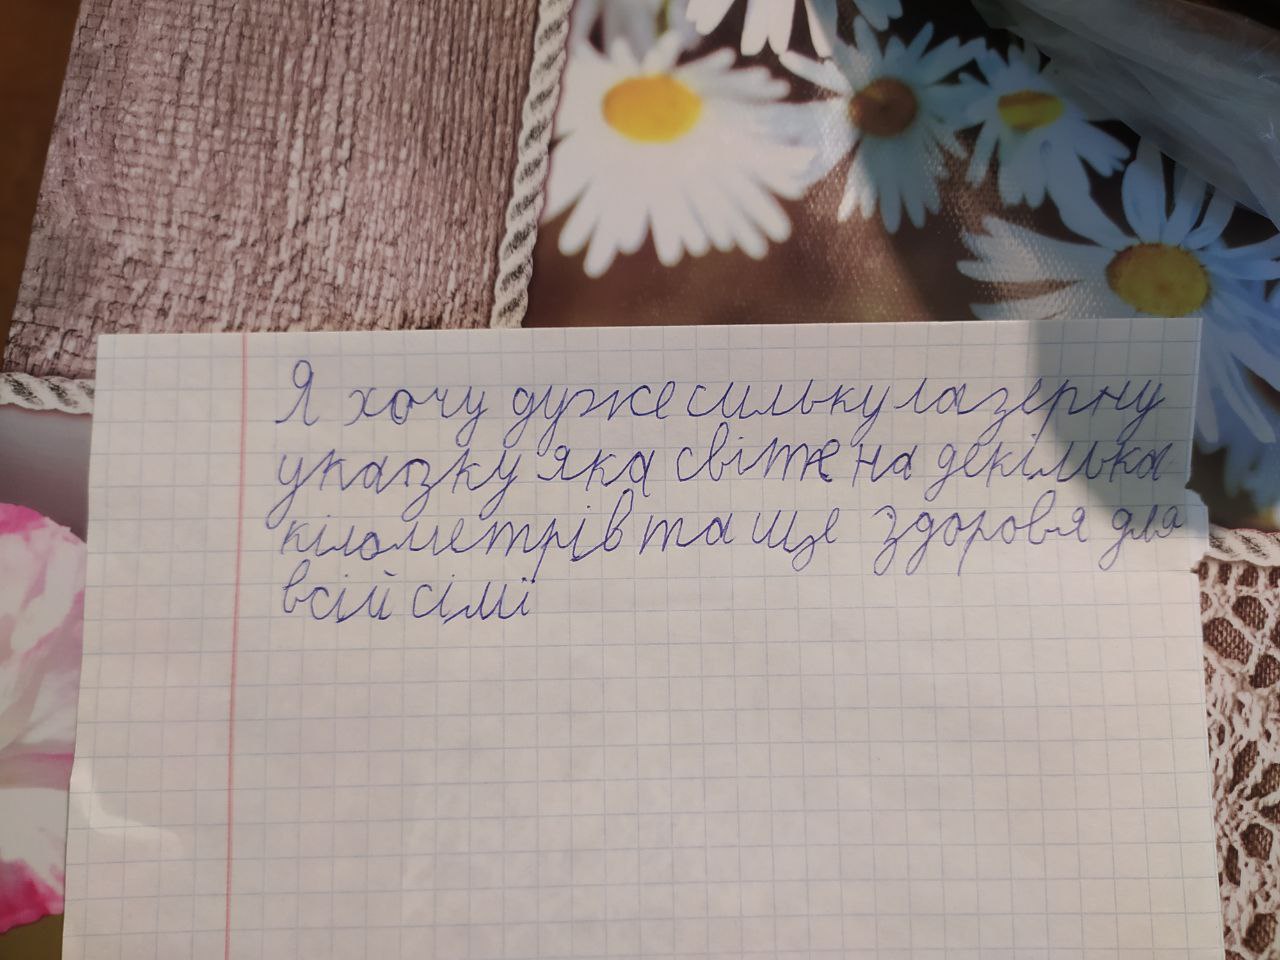 Я хочу дуже сильку лазерну
указку яка світе на декілька
кілометрів та ще здоровя для
всій сімї